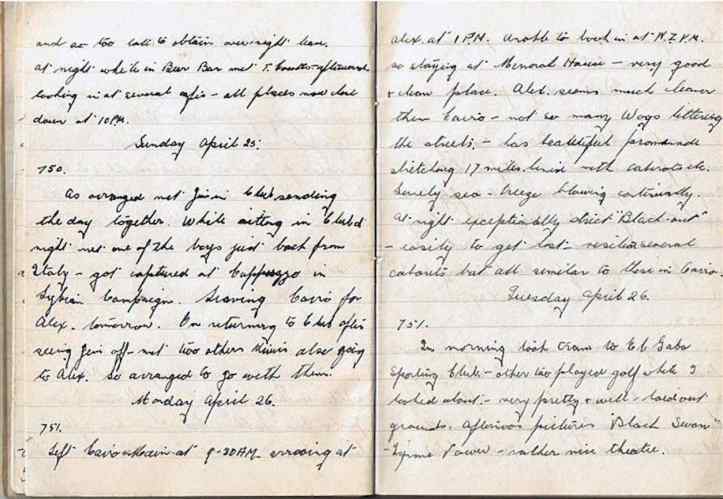 and so too late to obtain over-night leave.
at night while in Beer Bar met T. afterward
looking in at several cafes - all places now close
down at 10 P.M.
Sunday April 25.
750.
As arranged met Jim in Club sending
the day together. While sitting in Club
night met one of the boys just back from
Italy - got captured at Cappuzzo in
Lybian Campaign. Leaving Cairo for
Alex. tomorrow. On returning to Club after
seeing Jim off - met two others also going
to Alex. so arranged to go with them.
Monday April 26.
751.
Left Cairo at 9-30 AM arriving at
alex. at 1 P.M. Unable to book in at N.Z.
so staying at Memorial House - very good
& clean place. Alex. seems much cleaner
then Cairo - not so many Wogs littering
the streets, - has beautiful promanade
stretching 17 miles lined with cabarets etc.
Lovely sea breeze blowing continually.
At night exceptionally strict Black-out"
- easily to get lost - several
cabarets but all similar to those in Cairo.
Tuesday April 26.
751.
In morning took tram to El Gaba
Sporting Club - other two played golf while I
looked about, - very pretty & well-laid out
grounds. pictures "Black Swan"
- Tyrone Power - rather nice theatre.